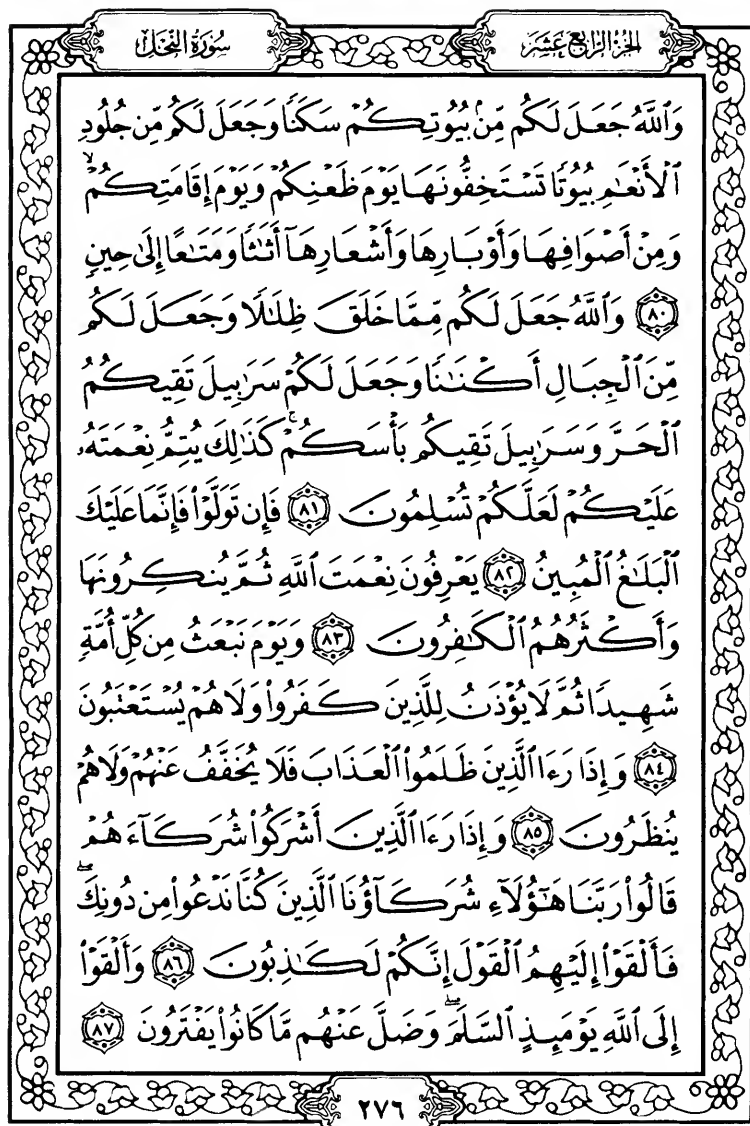 الجزء الرابع عشر
سورة النحل
وَٱللَّهُ جَعَلَ لَكُم مِّنۢ بُيُوتِكُمۡ سَكَنٗا وَجَعَلَ لَكُم مِّن جُلُودِ
ٱلۡأَنۡعَٰمِ بُيُوتٗا تَسۡتَخِفُّونَهَا يَوۡمَ ظَعۡنِكُمۡ وَيَوۡمَ إِقَامَتِكُمۡۙ
وَمِنۡ أَصۡوَافِهَا وَأَوۡبَارِهَا وَأَشۡعَارِهَآ أَثَٰثٗا وَمَتَٰعًا إِلَىٰ حِينٖ
٨٠ وَٱللَّهُ جَعَلَ لَكُم مِّمَّا خَلَقَ ظِلَٰلٗا وَجَعَلَ لَكُم
مِّنَ ٱلۡجِبَالِ أَكۡنَٰنٗا وَجَعَلَ لَكُمۡ سَرَٰبِيلَ تَقِيكُمُ
ٱلۡحَرَّ وَسَرَٰبِيلَ تَقِيكُم بَأۡسَكُمۡۚ كَذَٰلِكَ يُتِمُّ نِعۡمَتَهُۥ
عَلَيۡكُمۡ لَعَلَّكُمۡ تُسۡلِمُونَ ٨١ فَإِن تَوَلَّوۡاْ فَإِنَّمَا عَلَيۡكَ
ٱلۡبَلَٰغُ ٱلۡمُبِينُ ٨٢ يَعۡرِفُونَ نِعۡمَتَ ٱللَّهِ ثُمَّ يُنكِرُونَهَا
وَأَكۡثَرُهُمُ ٱلۡكَٰفِرُونَ ٨٣ وَيَوۡمَ نَبۡعَثُ مِن كُلِّ أُمَّةٖ
شَهِيدٗا ثُمَّ لَا يُؤۡذَنُ لِلَّذِينَ كَفَرُواْ وَلَا هُمۡ يُسۡتَعۡتَبُونَ
٨٤ وَإِذَا رَءَا ٱلَّذِينَ ظَلَمُواْ ٱلۡعَذَابَ فَلَا يُخَفَّفُ عَنۡهُمۡ وَلَا هُمۡ
يُنظَرُونَ ٨٥ وَإِذَا رَءَا ٱلَّذِينَ أَشۡرَكُواْ شُرَكَآءَهُمۡ
قَالُواْ رَبَّنَا هَٰٓؤُلَآءِ شُرَكَآؤُنَا ٱلَّذِينَ كُنَّا نَدۡعُواْ مِن دُونِكَۖ
فَأَلۡقَوۡاْ إِلَيۡهِمُ ٱلۡقَوۡلَ إِنَّكُمۡ لَكَٰذِبُونَ ٨٦ وَأَلۡقَوۡاْ
إِلَى ٱللَّهِ يَوۡمَئِذٍ ٱلسَّلَمَۖ وَضَلَّ عَنۡهُم مَّا كَانُواْ يَفۡتَرُونَ ٨٧
٢٧٦